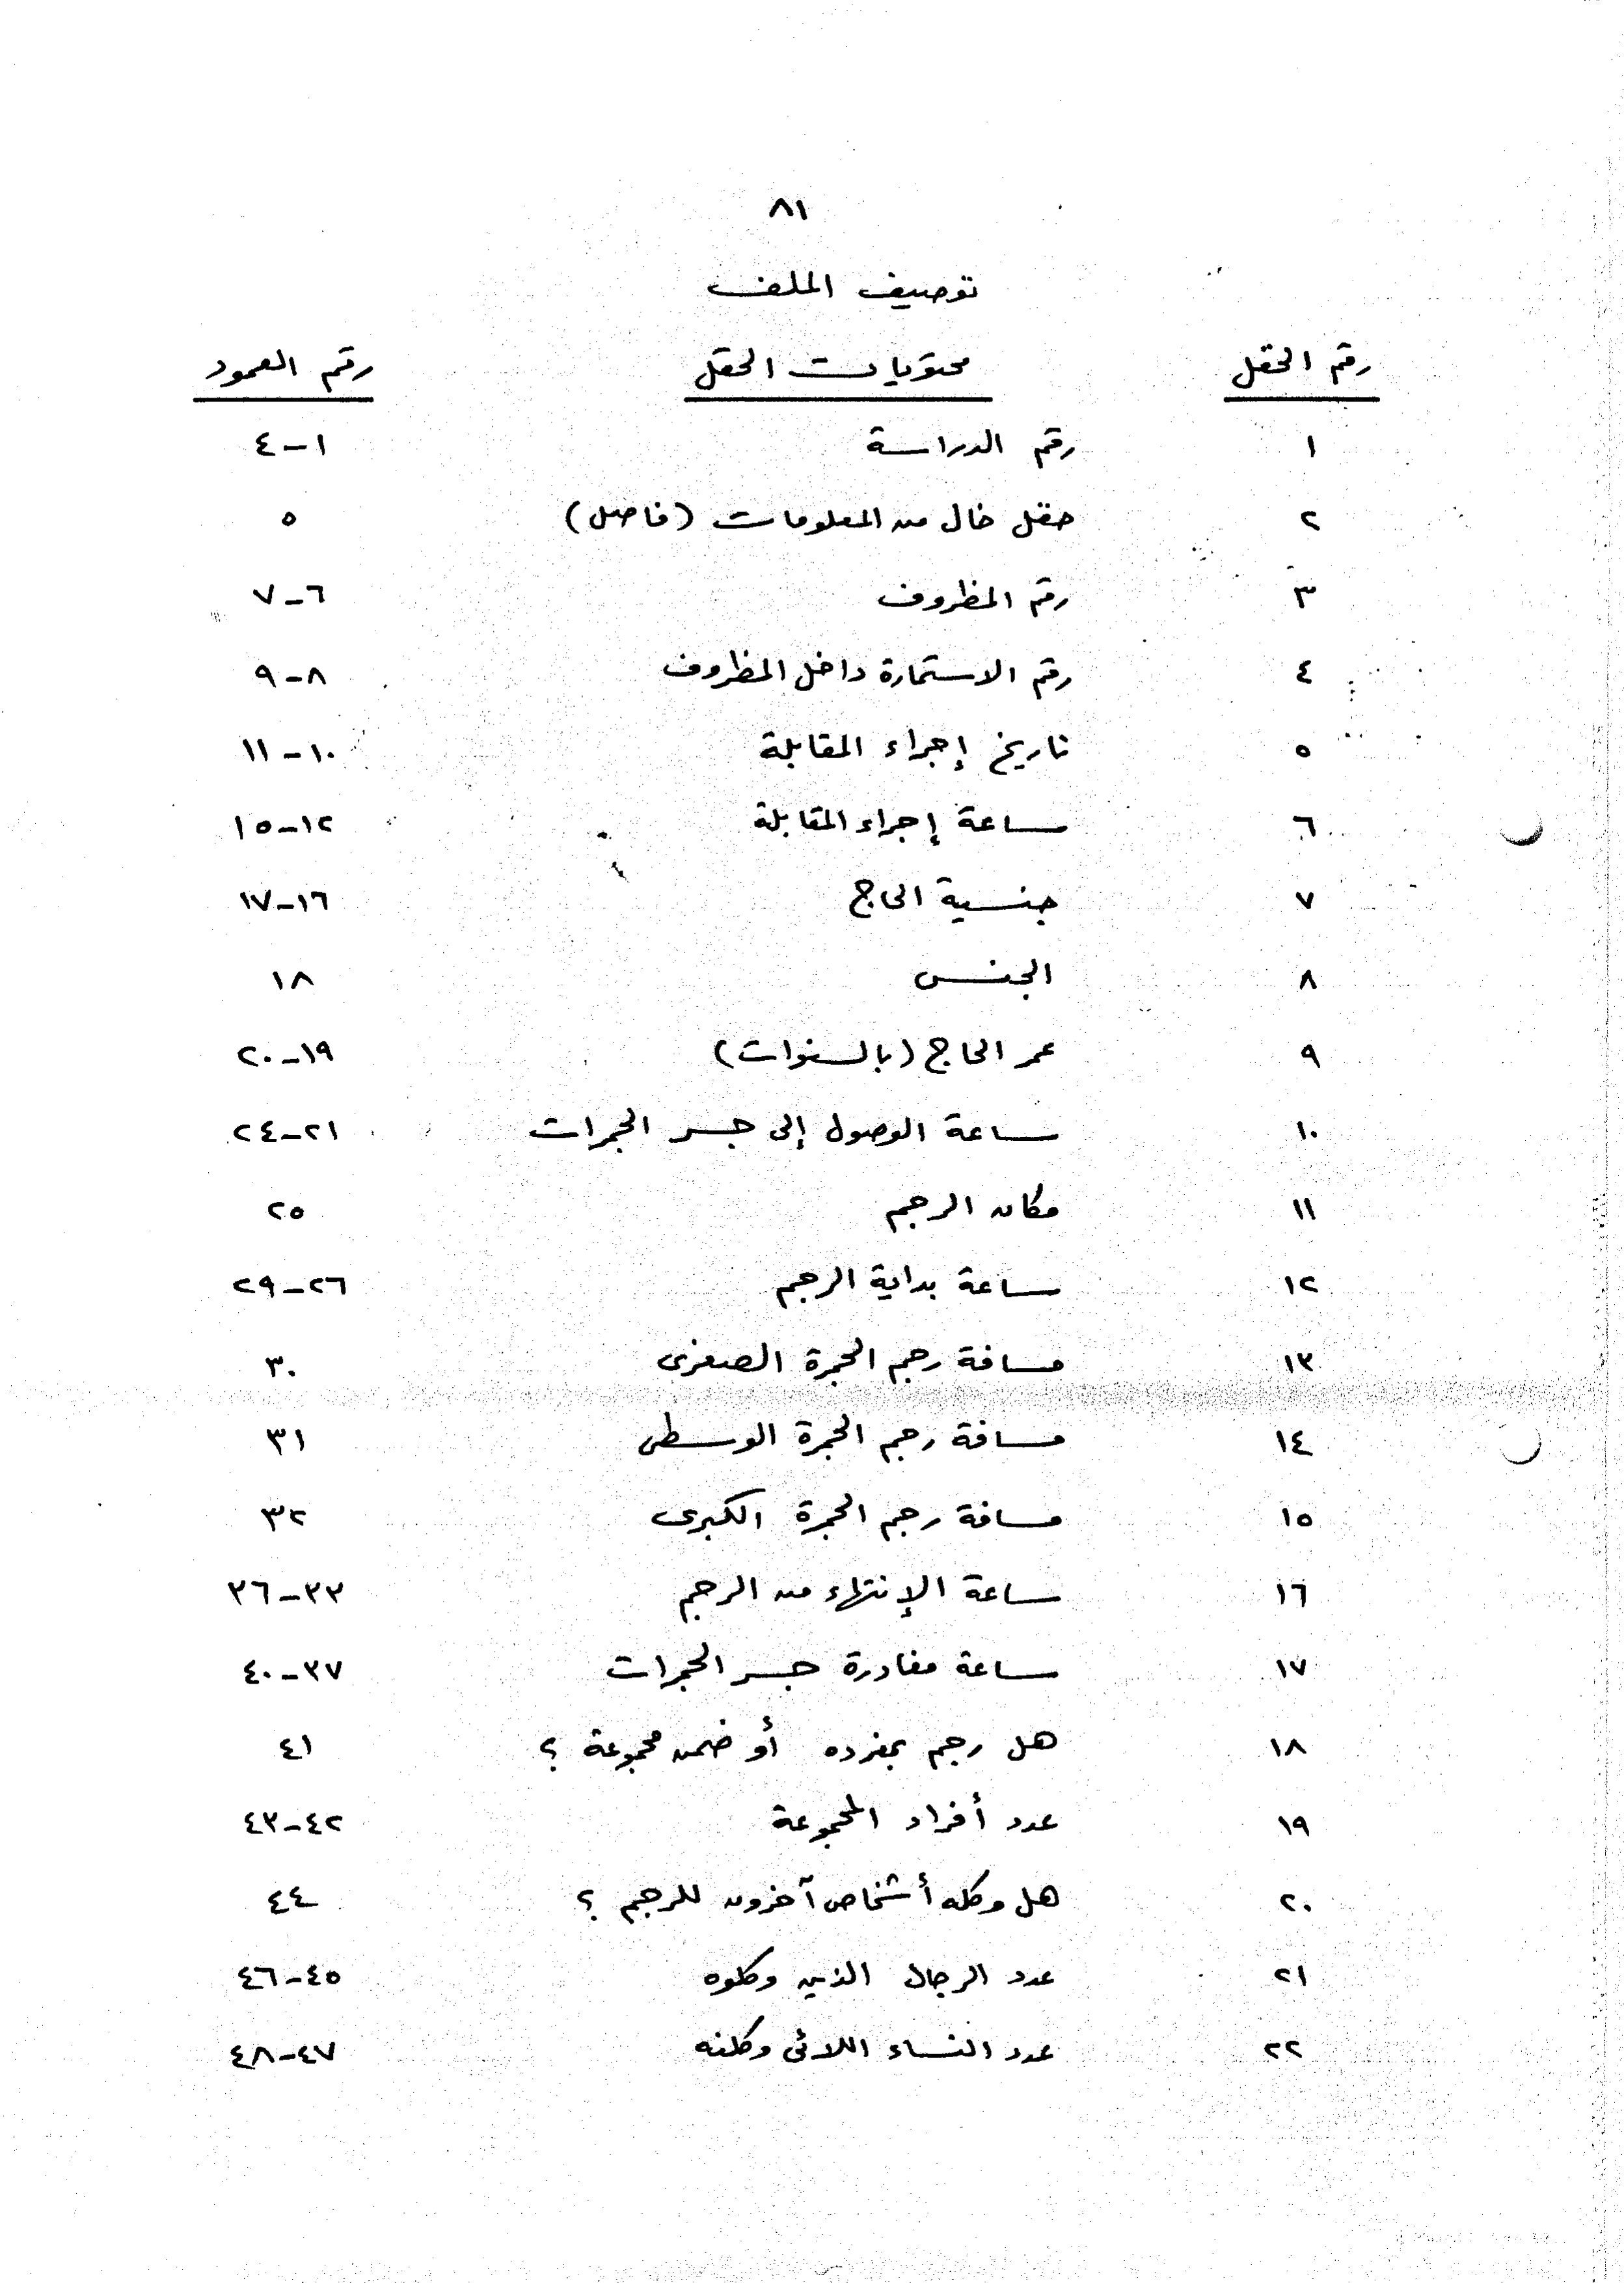 ٨١
توصيف الملف
رقم الحقل محتويات الحقل رقم العمود
١ رقم الدراسة ١-٤
٢ حقل خال من المعلومات (فاصل) ٥
٣ رقم المظروف ٦-٧
٤ رقم الاستمارة داخل المظروف ٨-٩
٥ تاريخ إجراء المقابلة ١٠-١١
٦ ساعة إجراء المقابلة ١٢-١٥
٧ جنسية الحاج ١٦-١٧
٨ الجنس ١٨
٩ عمر الحاج (بالسنوات) ١٩-٢٠
١٠ ساعة الوصول إلى جسر الجمرات ٢١-٢٤
١١ مكان الرجم ٢٥
١٢ ساعة بداية الرجم ٢٦-٢٩
١٣ مسافة رجم الجمرة الصغرى ٣٠
١٤ مسافة رجم الجمرة الوسطى ٣١
١٥ مسافة رجم الجمرة الكبرى ٣٢
١٦ ساعة الإنتهاء من الرجم ٣٣-٣٦
١٧ ساعة مغادرة جسر الجمرات ٣٧-٤٠
١٨ هل رجم بمفرده أو ضمن مجموعة ؟ ٤١
١٩ عدد أفراد المجموعة ٤٢-٤٣
٢٠ هل وكله أشخاص آخرون للرجم ؟ ٤٤
٢١ عدد الرجال الذين وكلوه ٤٥-٤٦
٢٢ عدد النساء اللائى وكلنه ٤٧-٤٨